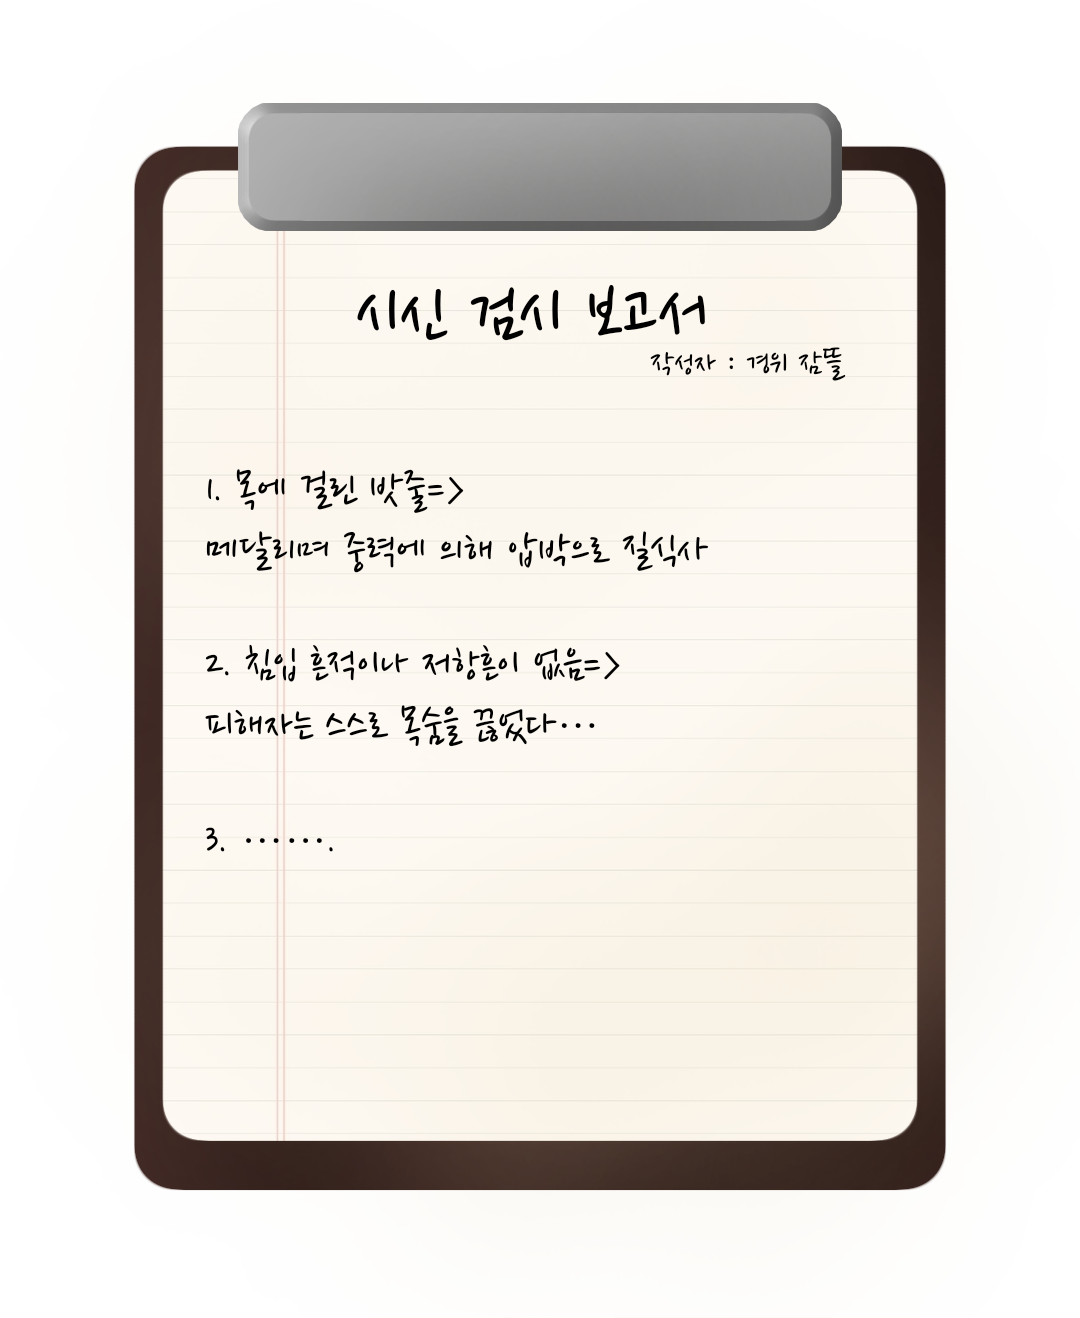 시신 검시 보고서
작성자 : 경위 잠뜰
1. 목에 걸린 밧줄=>
메달리며 중력에 의해 압박으로 질식사
2. 침입 흔적이나 저항흔이 없음=>
피해자는 스스로 목숨을 끊었다···
3. ······.